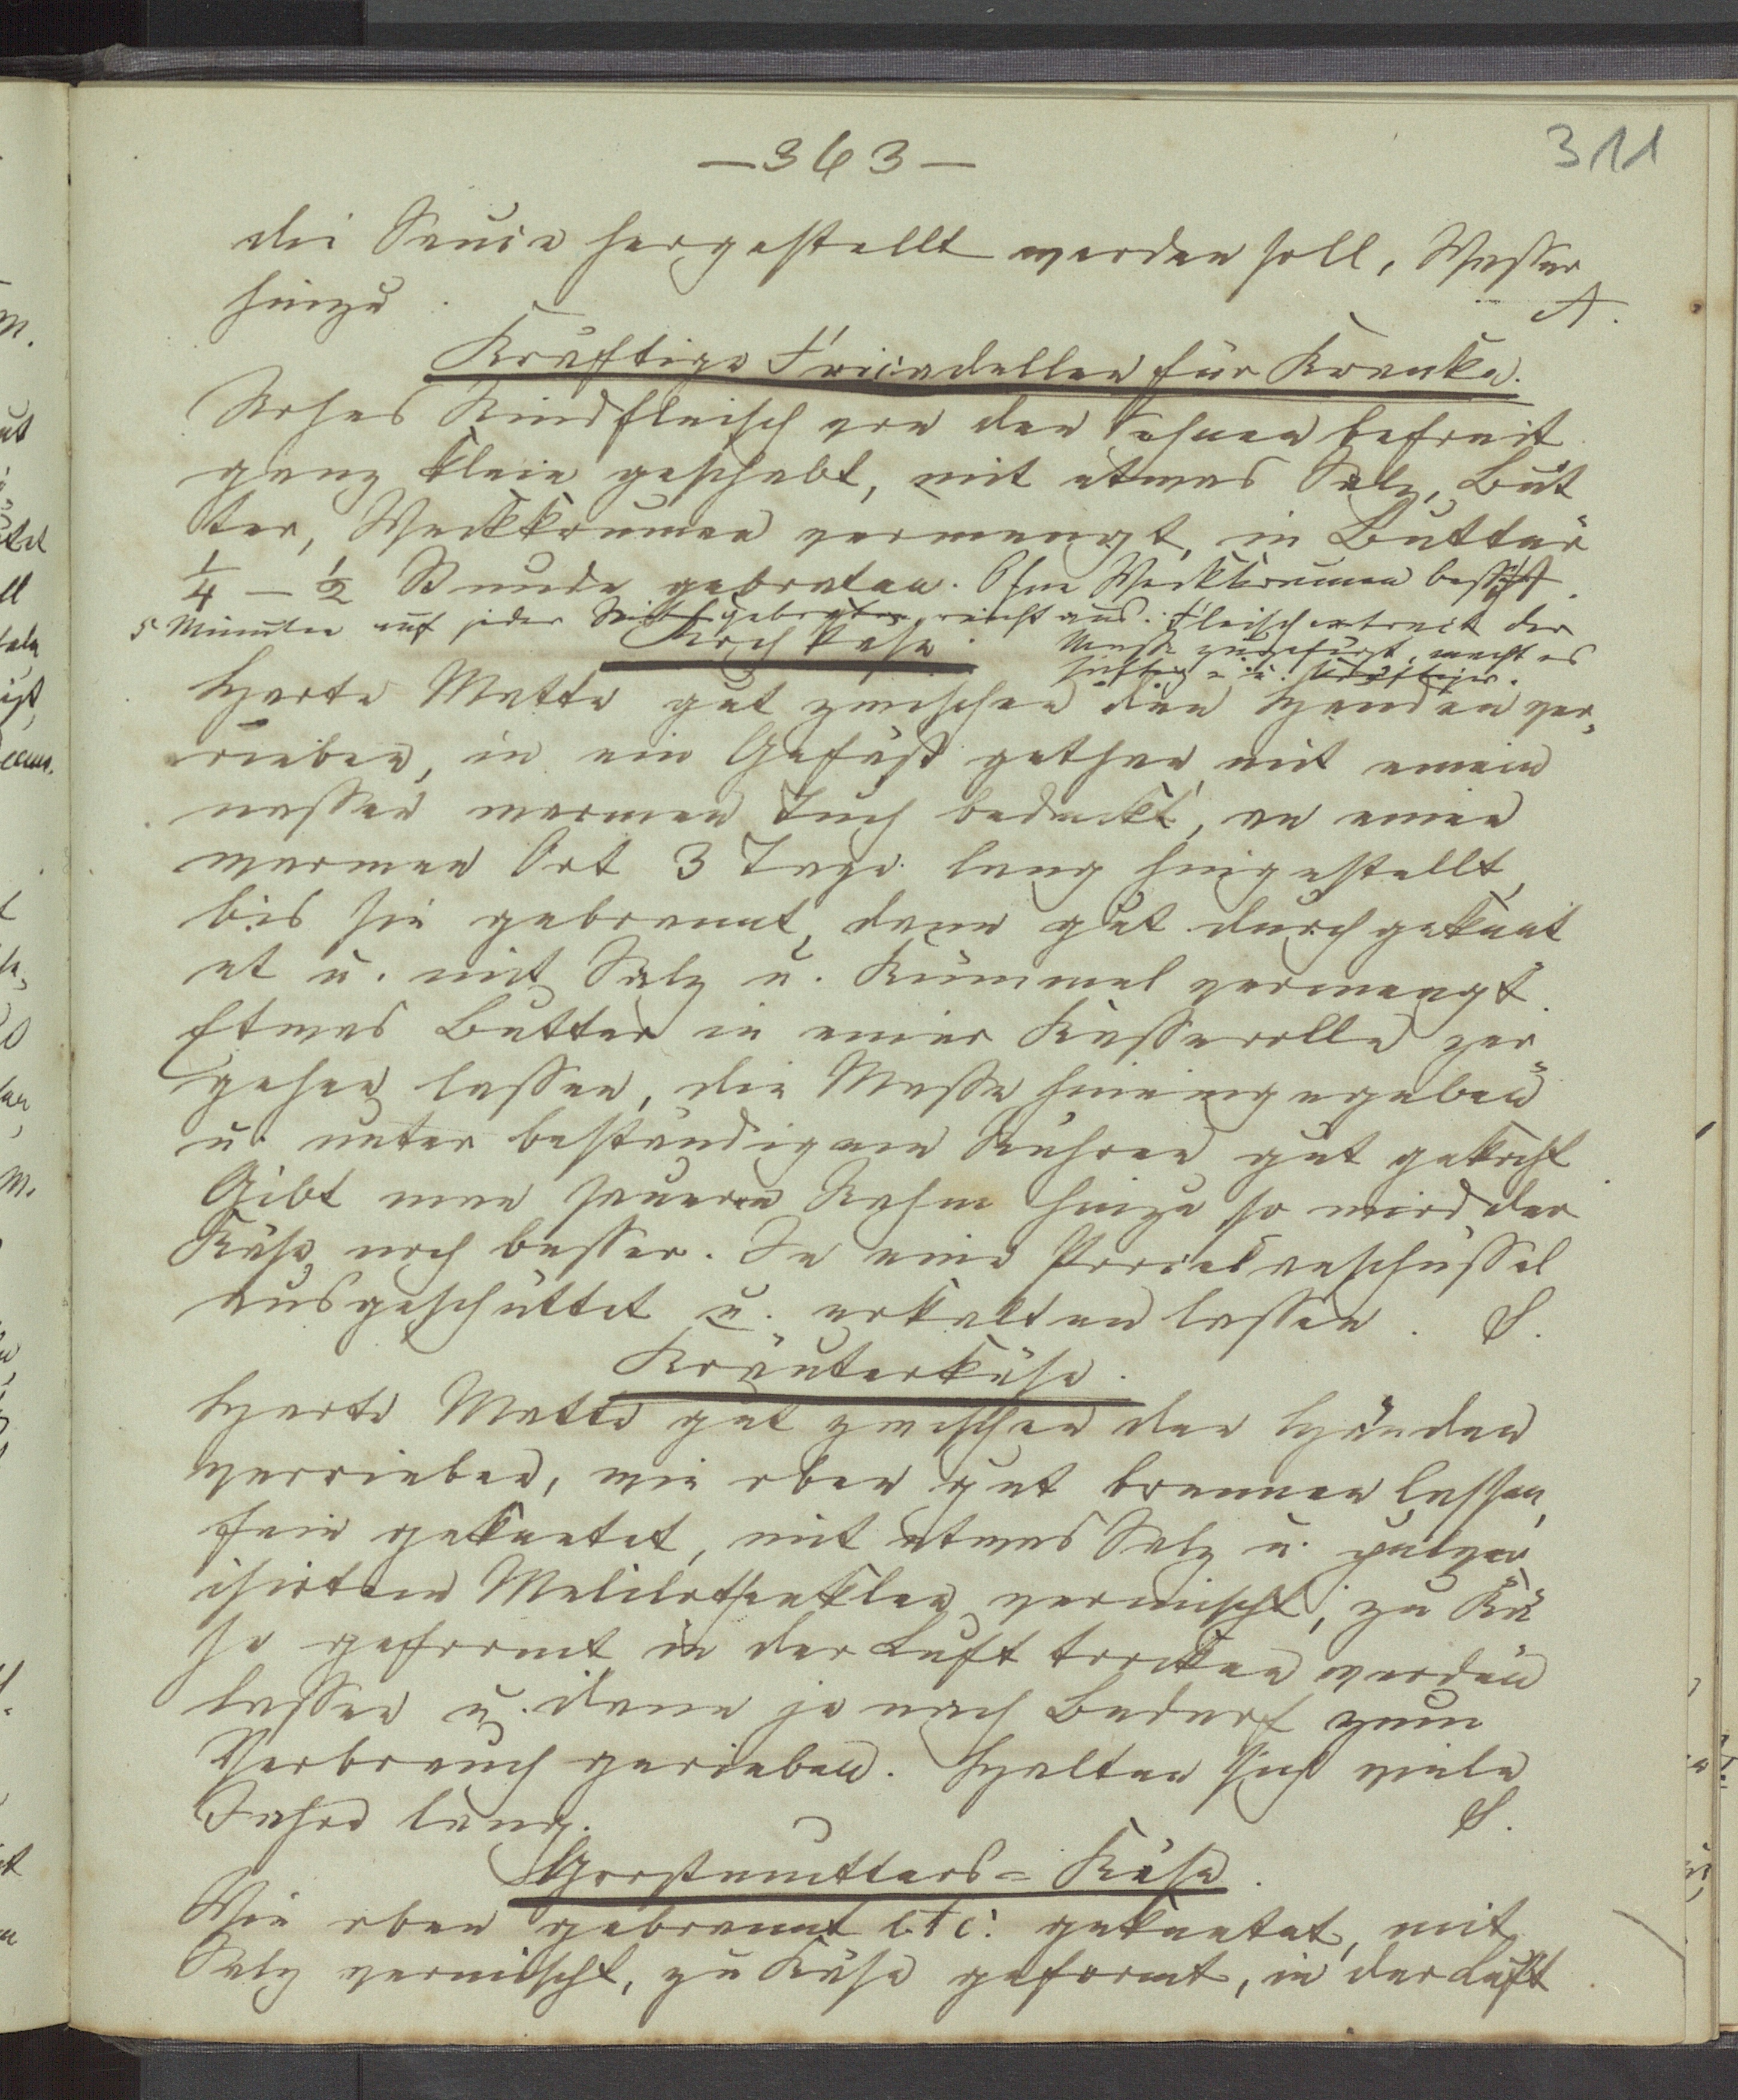 —363—
311
die Sauce hergestellt werden soll, Wasser
hinzu. A.
Kräftige Fricadellen für Kranke.
Rohes Rindfleisch von den Sehnen befreit
ganz klein geschabt, mit etwas Salz, But
ter, Weckkrumen vermengt, in Butter
1/4 – 1/2 Stunde gebraten. Ohne Weckkrumen
5 Minuten auf jeder Seite gebraten reicht aus. Fleischextract der
Masse zugefügt, macht es
saftig u. kräftiger.
Kochkäse.
Harte Matte gut zwischen den Händen ver¬
rieben, in ein Gefäß gethan mit einem
nassen warmen Tuch bedeckt, an einen
warmen Ort 3 Tage lang hingestellt,
bis sie gebrannt, dann gut durchgeknet
et u. mit Salz u. Kümmel vermengt.
Etwas Butter in einer Kasserolle zer
gehen lassen, die Masse hineingegeben
u. unter beständigem Rühren gut gekocht
Gibt man sauren Rahm hinzu so wird der
Käse noch besser. In eine Porcelanschüssel
ausgeschüttet u. erkalten lassen. S.
Kräuterkäse.
Harte Matte gut zwischen den Händen
verrieben, wie oben gut brennen lassen,
fein geknetet, mit etwas Salz u. pulver
isirtem Melilothenklee vermischt, zu Kä
se geformt in der Luft trocken werden
lassen u. dann je nach Bedarf zum
Verbrauch gerieben. Halten sich viele
Jahre lang. S.
Grosmutters-Käse.
Wie oben gebrannt etc. geknetet, mit
Salz vermischt, zu Käse geformt, in der Luft